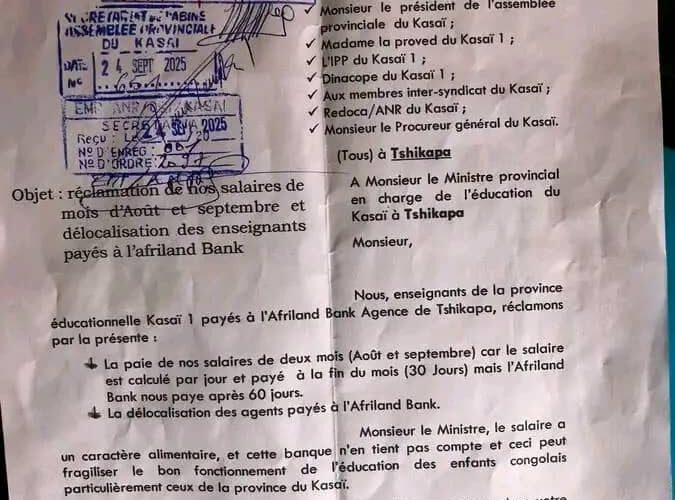 SECRETARIAT DE CABINE
ASSEMBLEE PROVINCIALE
DU KASAI
DATE 24 SEPT 2025
No
✓ Monsieur le président de l'assemblée
provinciale du Kasaï ;
✓ Madame la proved du Kasaï 1 ;
✓ L'IPP du Kasaï 1 ;
✓ Dinacope du Kasaï 1 ;
✓ Aux membres inter-syndicat du Kasaï ;
✓ Redoca/ANR du Kasaï ;
✓ Monsieur le Procureur général du Kasaï.
ANR KASAI
Reçu : Le 24 2025
N° D'ENREG:
N° D'ORDRE:
(Tous) à Tshikapa
Objet : réclamation de nos salaires de
mois d'Août et septembre et
délocalisation des enseignants
payés à l'afriland Bank
A Monsieur le Ministre provincial
en charge de l'éducation du
Kasaï à Tshikapa
Monsieur,
Nous, enseignants de la province
éducationnelle Kasaï 1 payés à l'Afriland Bank Agence de Tshikapa, réclamons
par la présente :
La paie de nos salaires de deux mois (Août et septembre) car le salaire
est calculé par jour et payé à la fin du mois (30 Jours) mais l'Afriland
Bank nous paye après 60 jours.
La délocalisation des agents payés à l'Afriland Bank.
Monsieur le Ministre, le salaire a
un caractère alimentaire, et cette banque n'en tient pas compte et ceci peut
fragiliser le bon fonctionnement de l'éducation des enfants congolais
particulièrement ceux de la province du Kasaï.